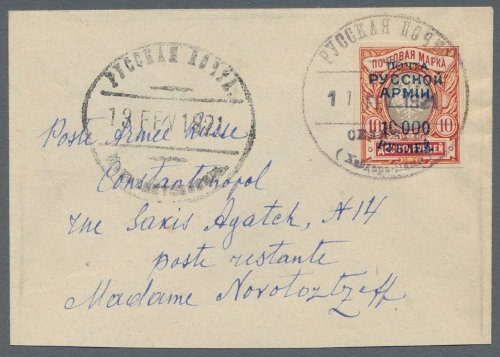 РУССКАЯ ПОЧТА
РУССКАЯ ПОЧТА
ПОЧТОВАЯ МАРКА
ПОЧТА
РУССКОЙ
АРМІИ
19 FEV 1921
11 1921
10 10
10.000
Рублей
Poste Armée Russe
Constantinopol
rue Saxis Agatch, N 14
poste restante
Madame Novotoztzeff